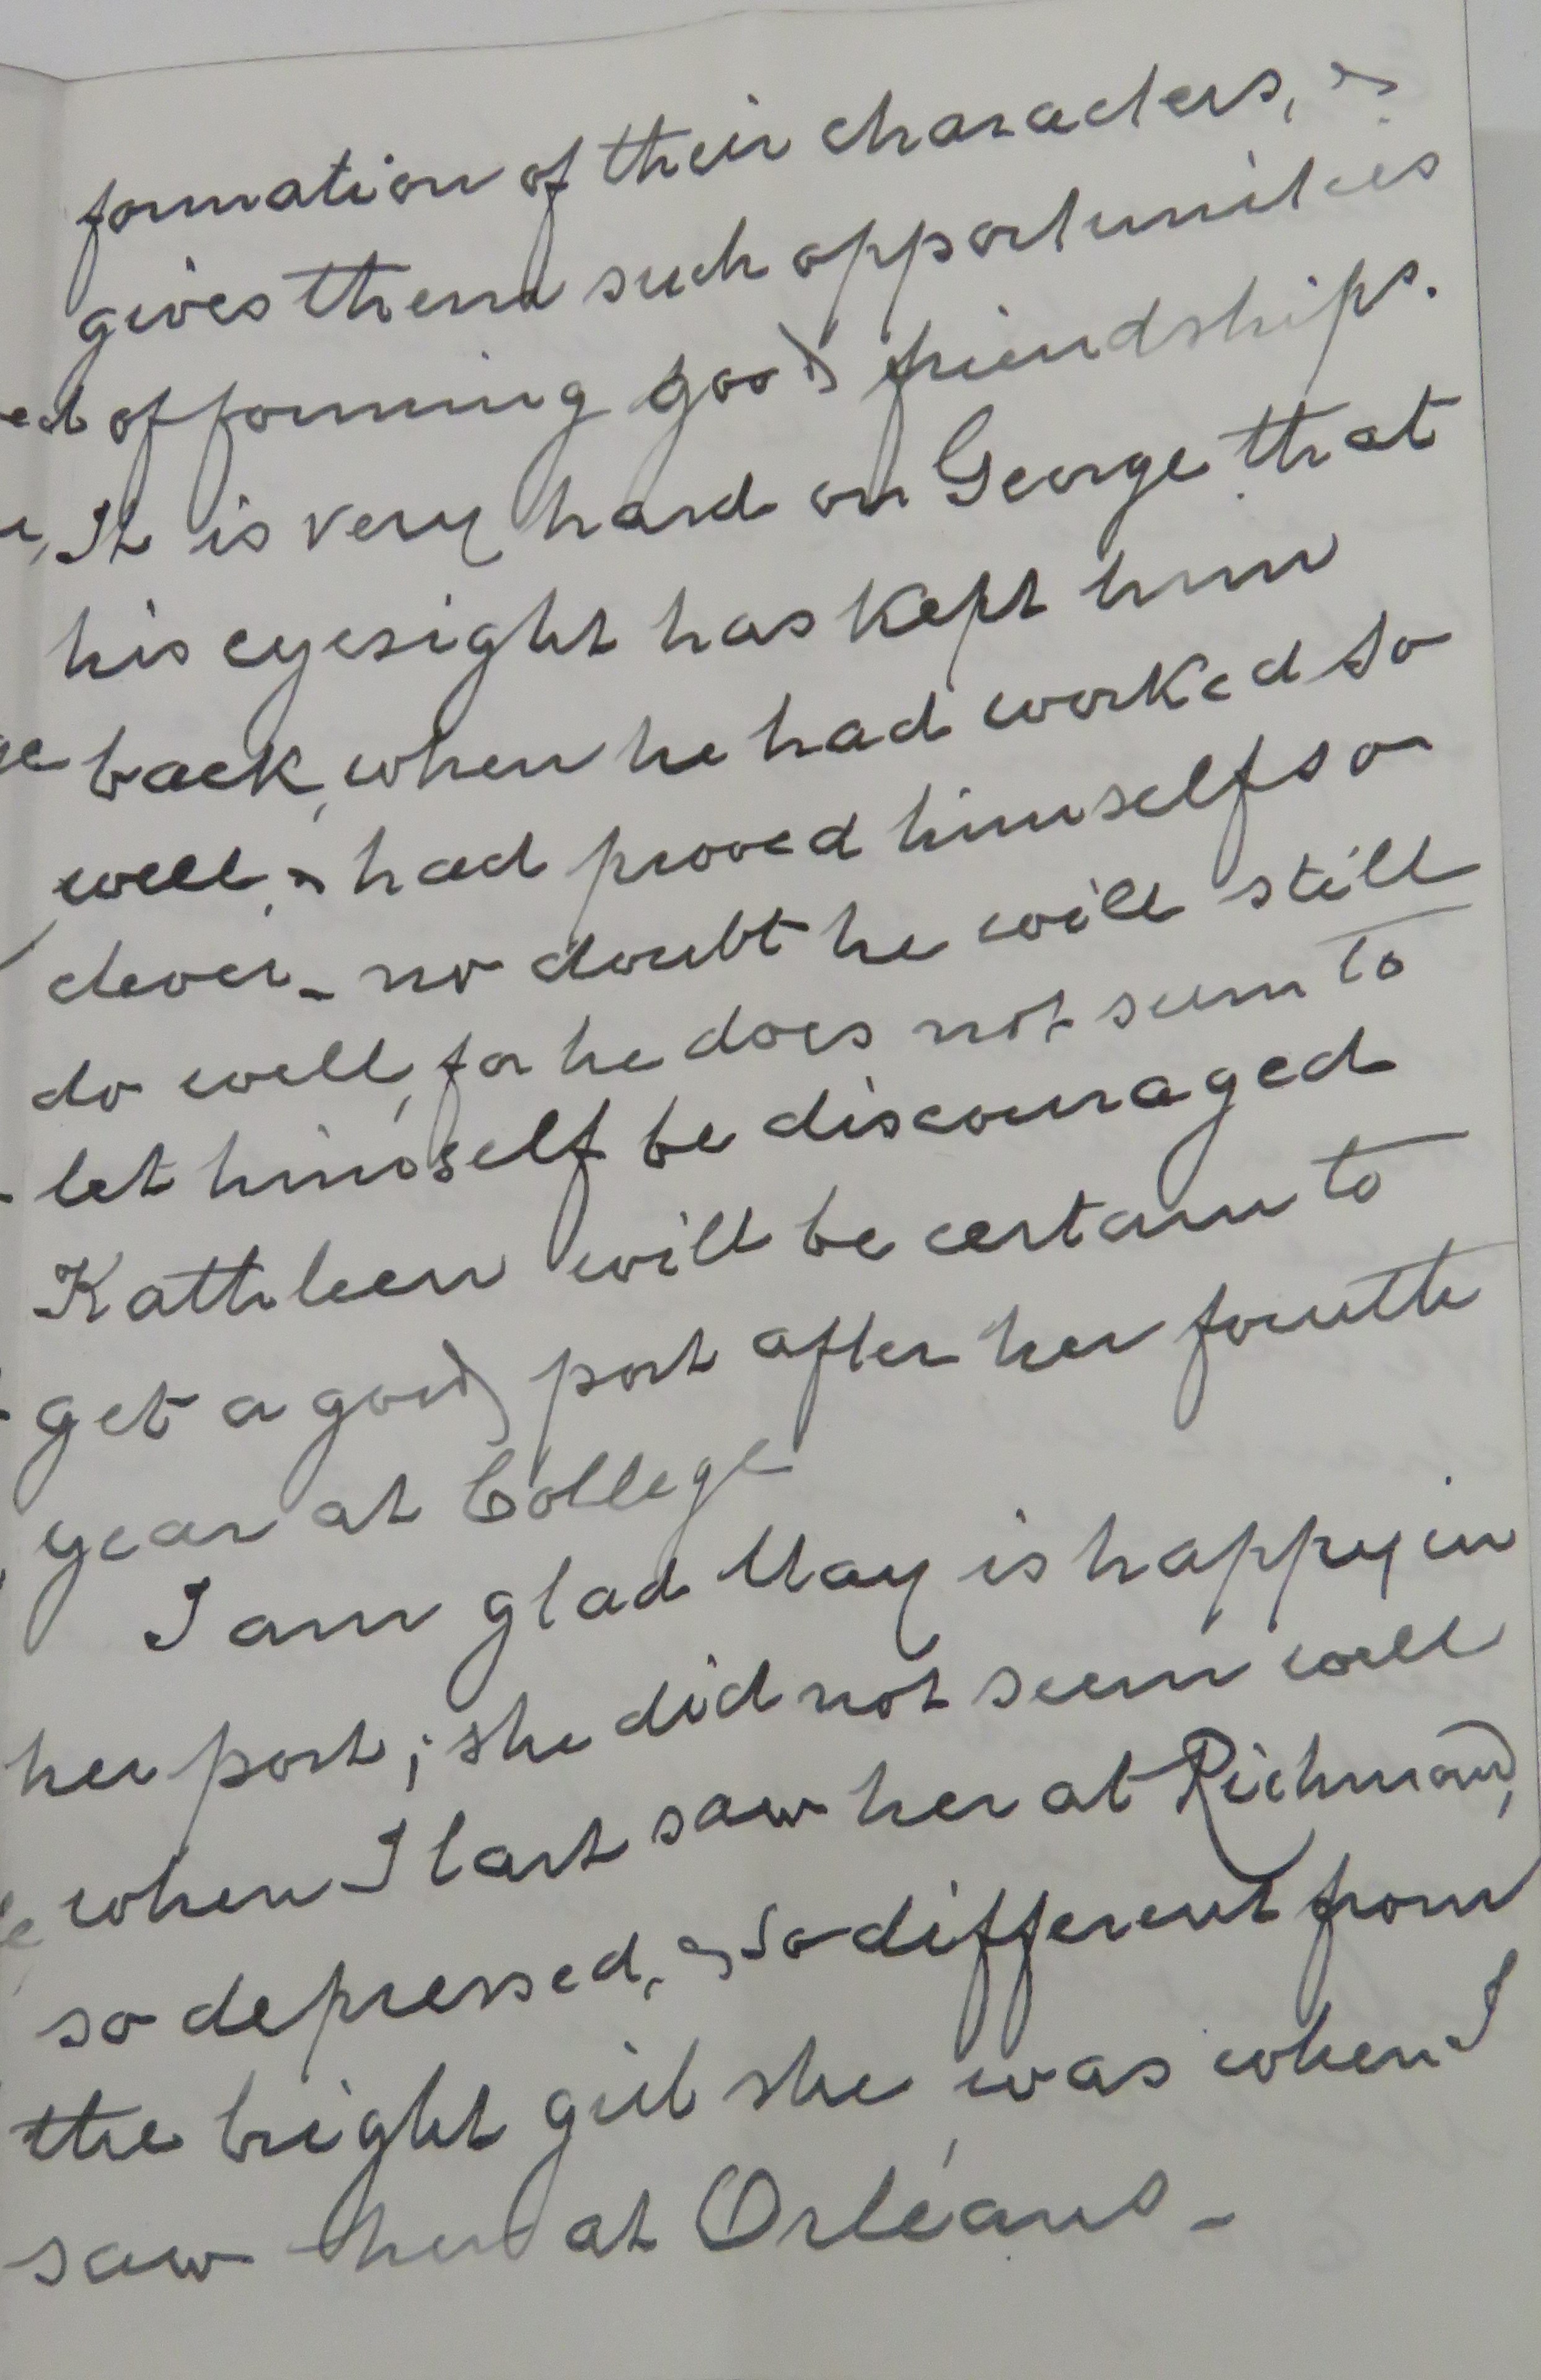 formation of their characters, &
gives them such opportunities
of forming good friendships.
It is very hard on George that
his eyesight has kept him
back, when he had worked so
well, & had proved himself so
clever – no doubt he will still
do well, for he does not seem to
let himself be discouraged
Kathleen will be certain to
get a good post after her fourth
year at College
I am glad May is happy in
her post; she did not seem well
when I last saw her at Richmond,
so depressed, & so different from
the bright girl she was when I
saw her at Orléans –